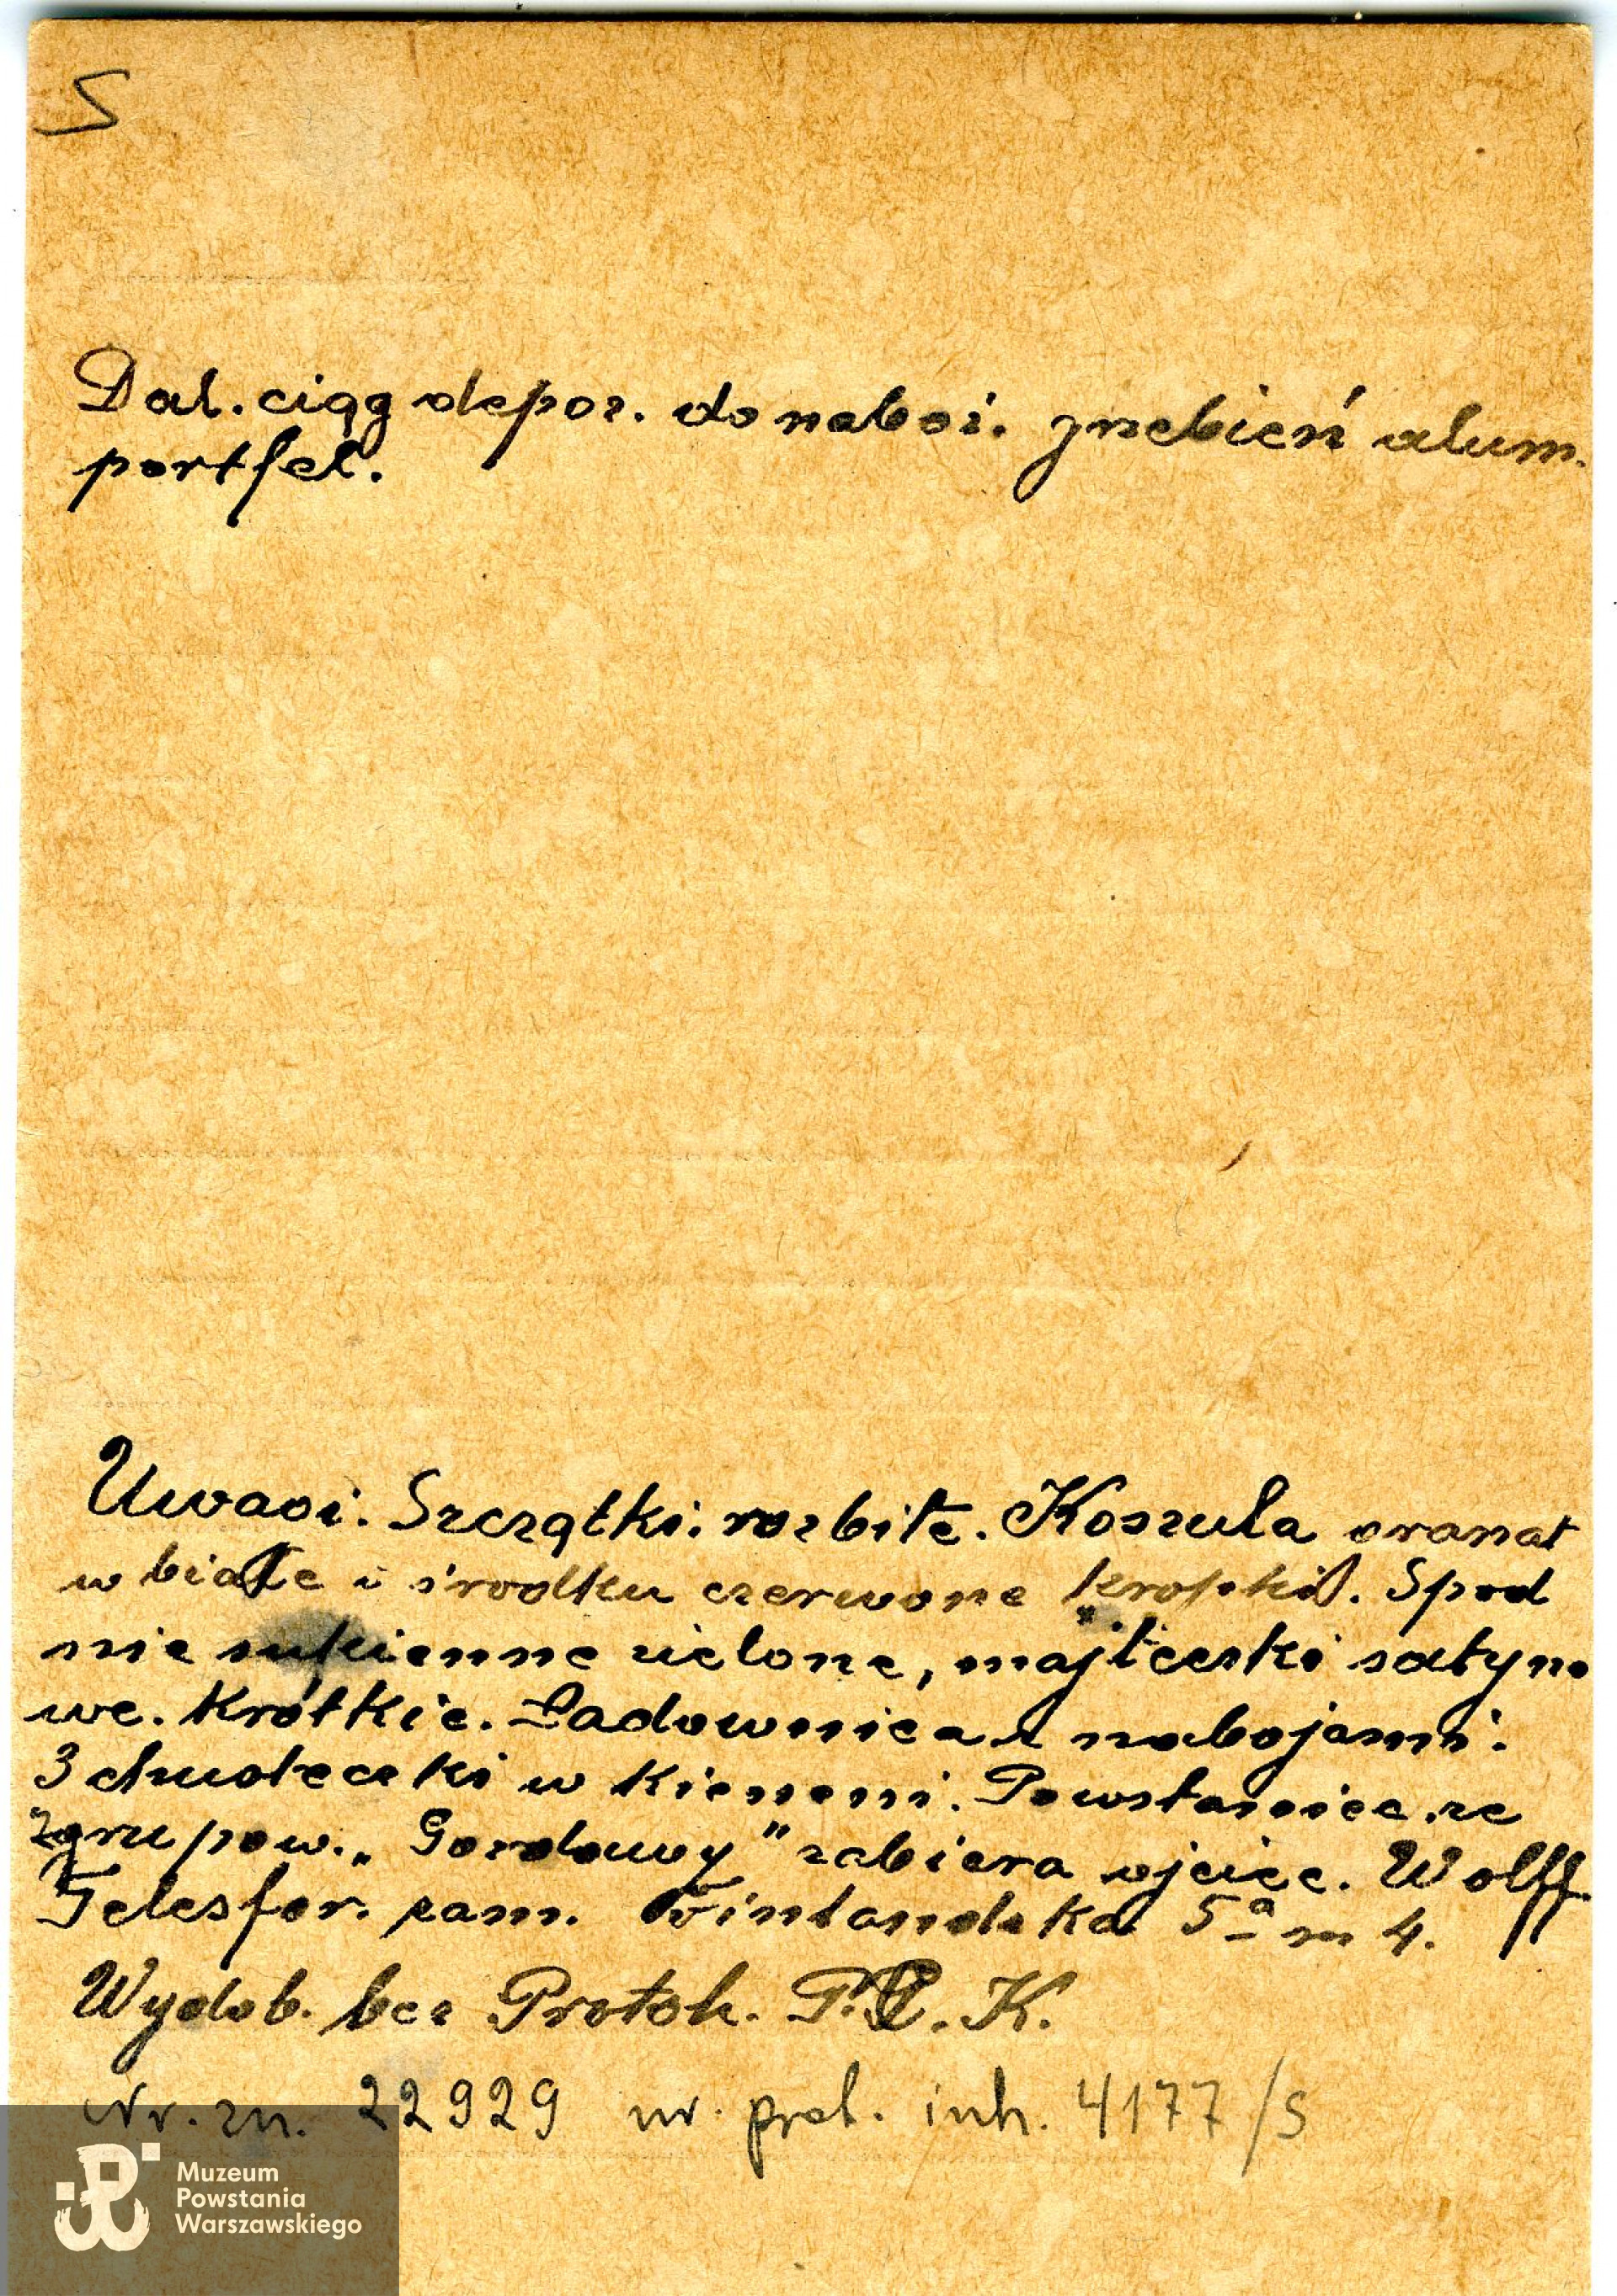 S
Dal. ciąg depoz. do naboż. grzebień alum.
portfel.
Uwagi. Szczątki. rozbite. Koszula granat
w białe i środku czerwone kropki. Spod
nie sukienne zielone, majteczki satyno
we. Krótkie. Ładownica z nabojami.
3 chusteczki w kieszeni. Powstaniec ze
zgrupow. „Gozdawy" zabiera ojciec. Wolff.
Telesfor. zam. Finlandzka 5a m 4.
Wydob. bez Protok. P.C.K.
Nr. zn. 22929 nr. prot. inh. 4177/S
Muzeum
Powstania
Warszawskiego